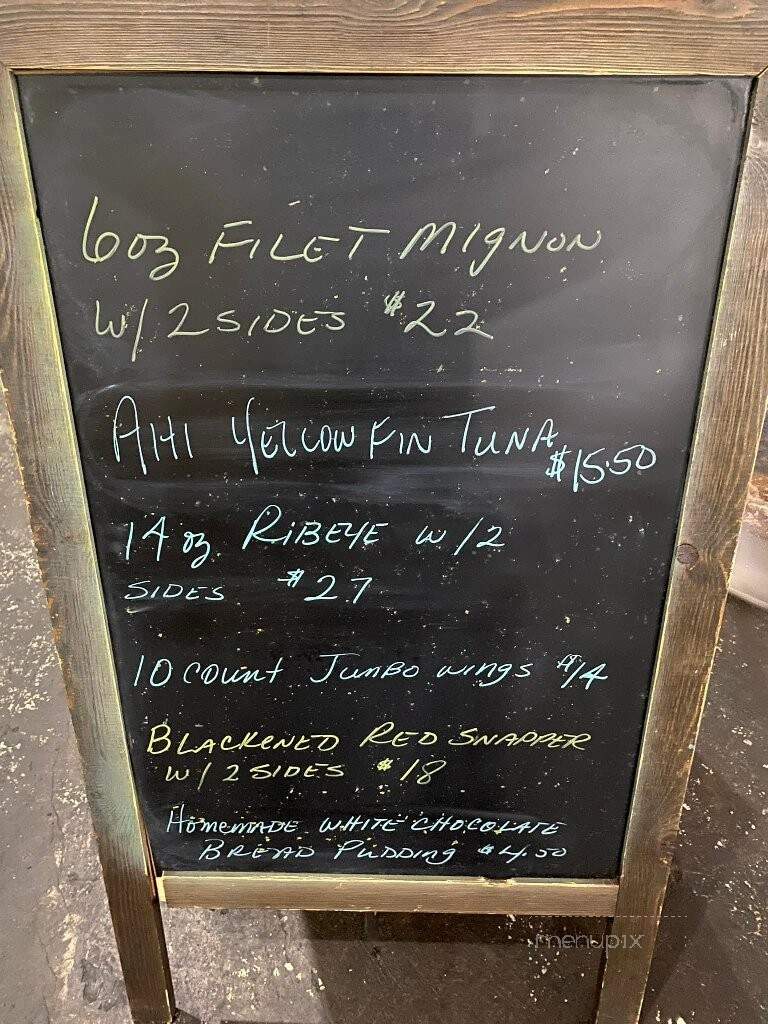 6oz FILET MIGNON
W/ 2 SIDES $22
AHI YELLOW FIN TUNA $15.50
14 oz. RIBEYE W/2
SIDES $27
10 COUNT JUMBO WINGS $14
BLACKENED RED SNAPPER
W/ 2 SIDES $18
HOMEMADE WHITE CHOCOLATE
BREAD PUDDING $4.50
menupix